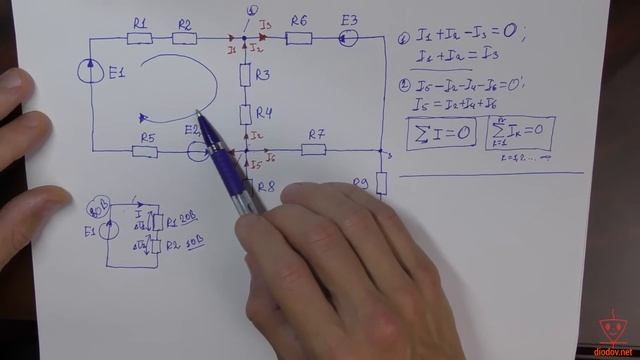 R1 R2 ① I3 R6 E3
I1 I2
E1
R3
R4
R5 E2 I2 R7
I5 I6 3
R8 R9
① I1 + I2 - I3 = 0;
I1 + I2 = I3
② I5 - I2 - I4 - I6 = 0;
I5 = I2 + I4 + I6
∑I = 0
n
∑ Iк = 0
к=1
к=1,2...
30В I
E1 R1 20В
R2 10В
diodov.net